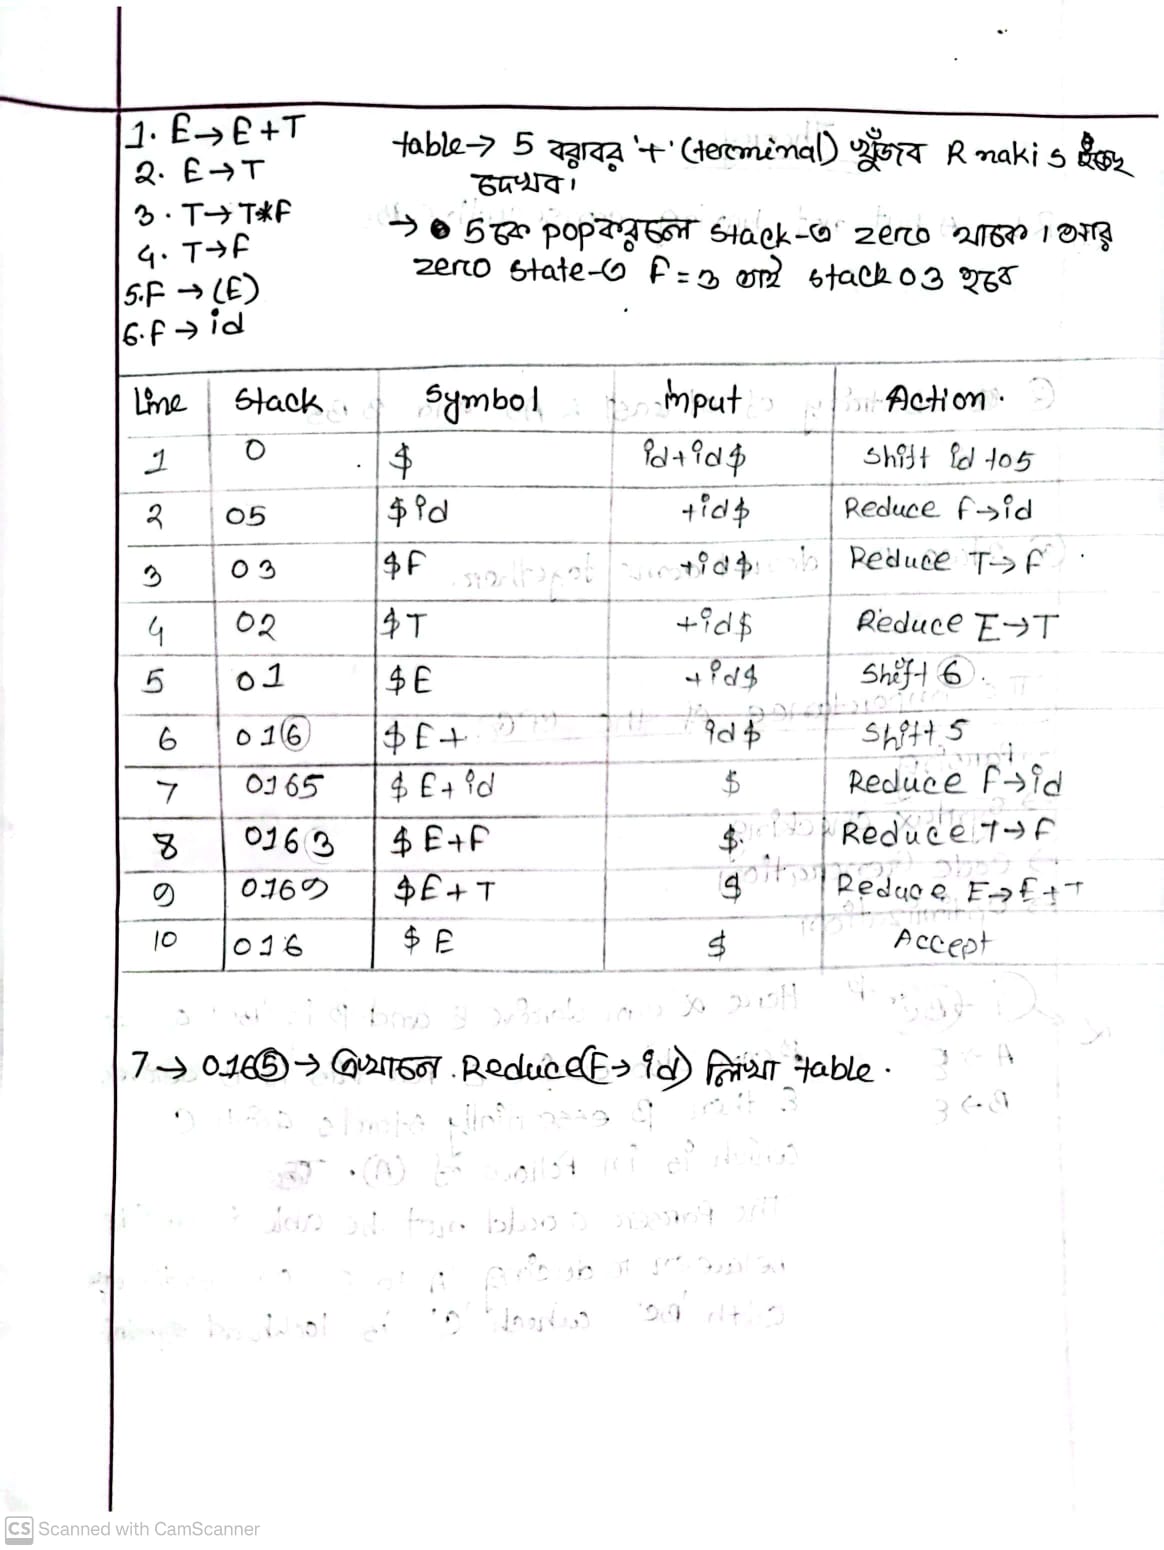 1. E→E+T
2. E→T
3. T→T*F
4. T→F
5. F→(E)
6. F→id
table→ 5 বরাবর '+' (terminal) খুঁজব R naki s
দেখব।
→ 5 কে pop করলে stack-এ zero থাকে। আর
zero state-এ F=3 তাই stack 03 হবে
Line Stack Symbol input Action.
1 0 $ id+id$ Shift id to 5
2 05 $id +id$ Reduce F→id
3 03 $F +id$ Reduce T→F
4 02 $T +id$ Reduce E→T
5 01 $E +id$ Shift 6
6 016 $E+ id$ Shift 5
7 0165 $E+id $ Reduce F→id
8 0163 $E+F $ Reduce T→F
9 0169 $E+T $ Reduce E→E+T
10 016 $E $ Accept
7→ 0165→ এখানে. Reduce(F→id) লিখা table.
CS Scanned with CamScanner